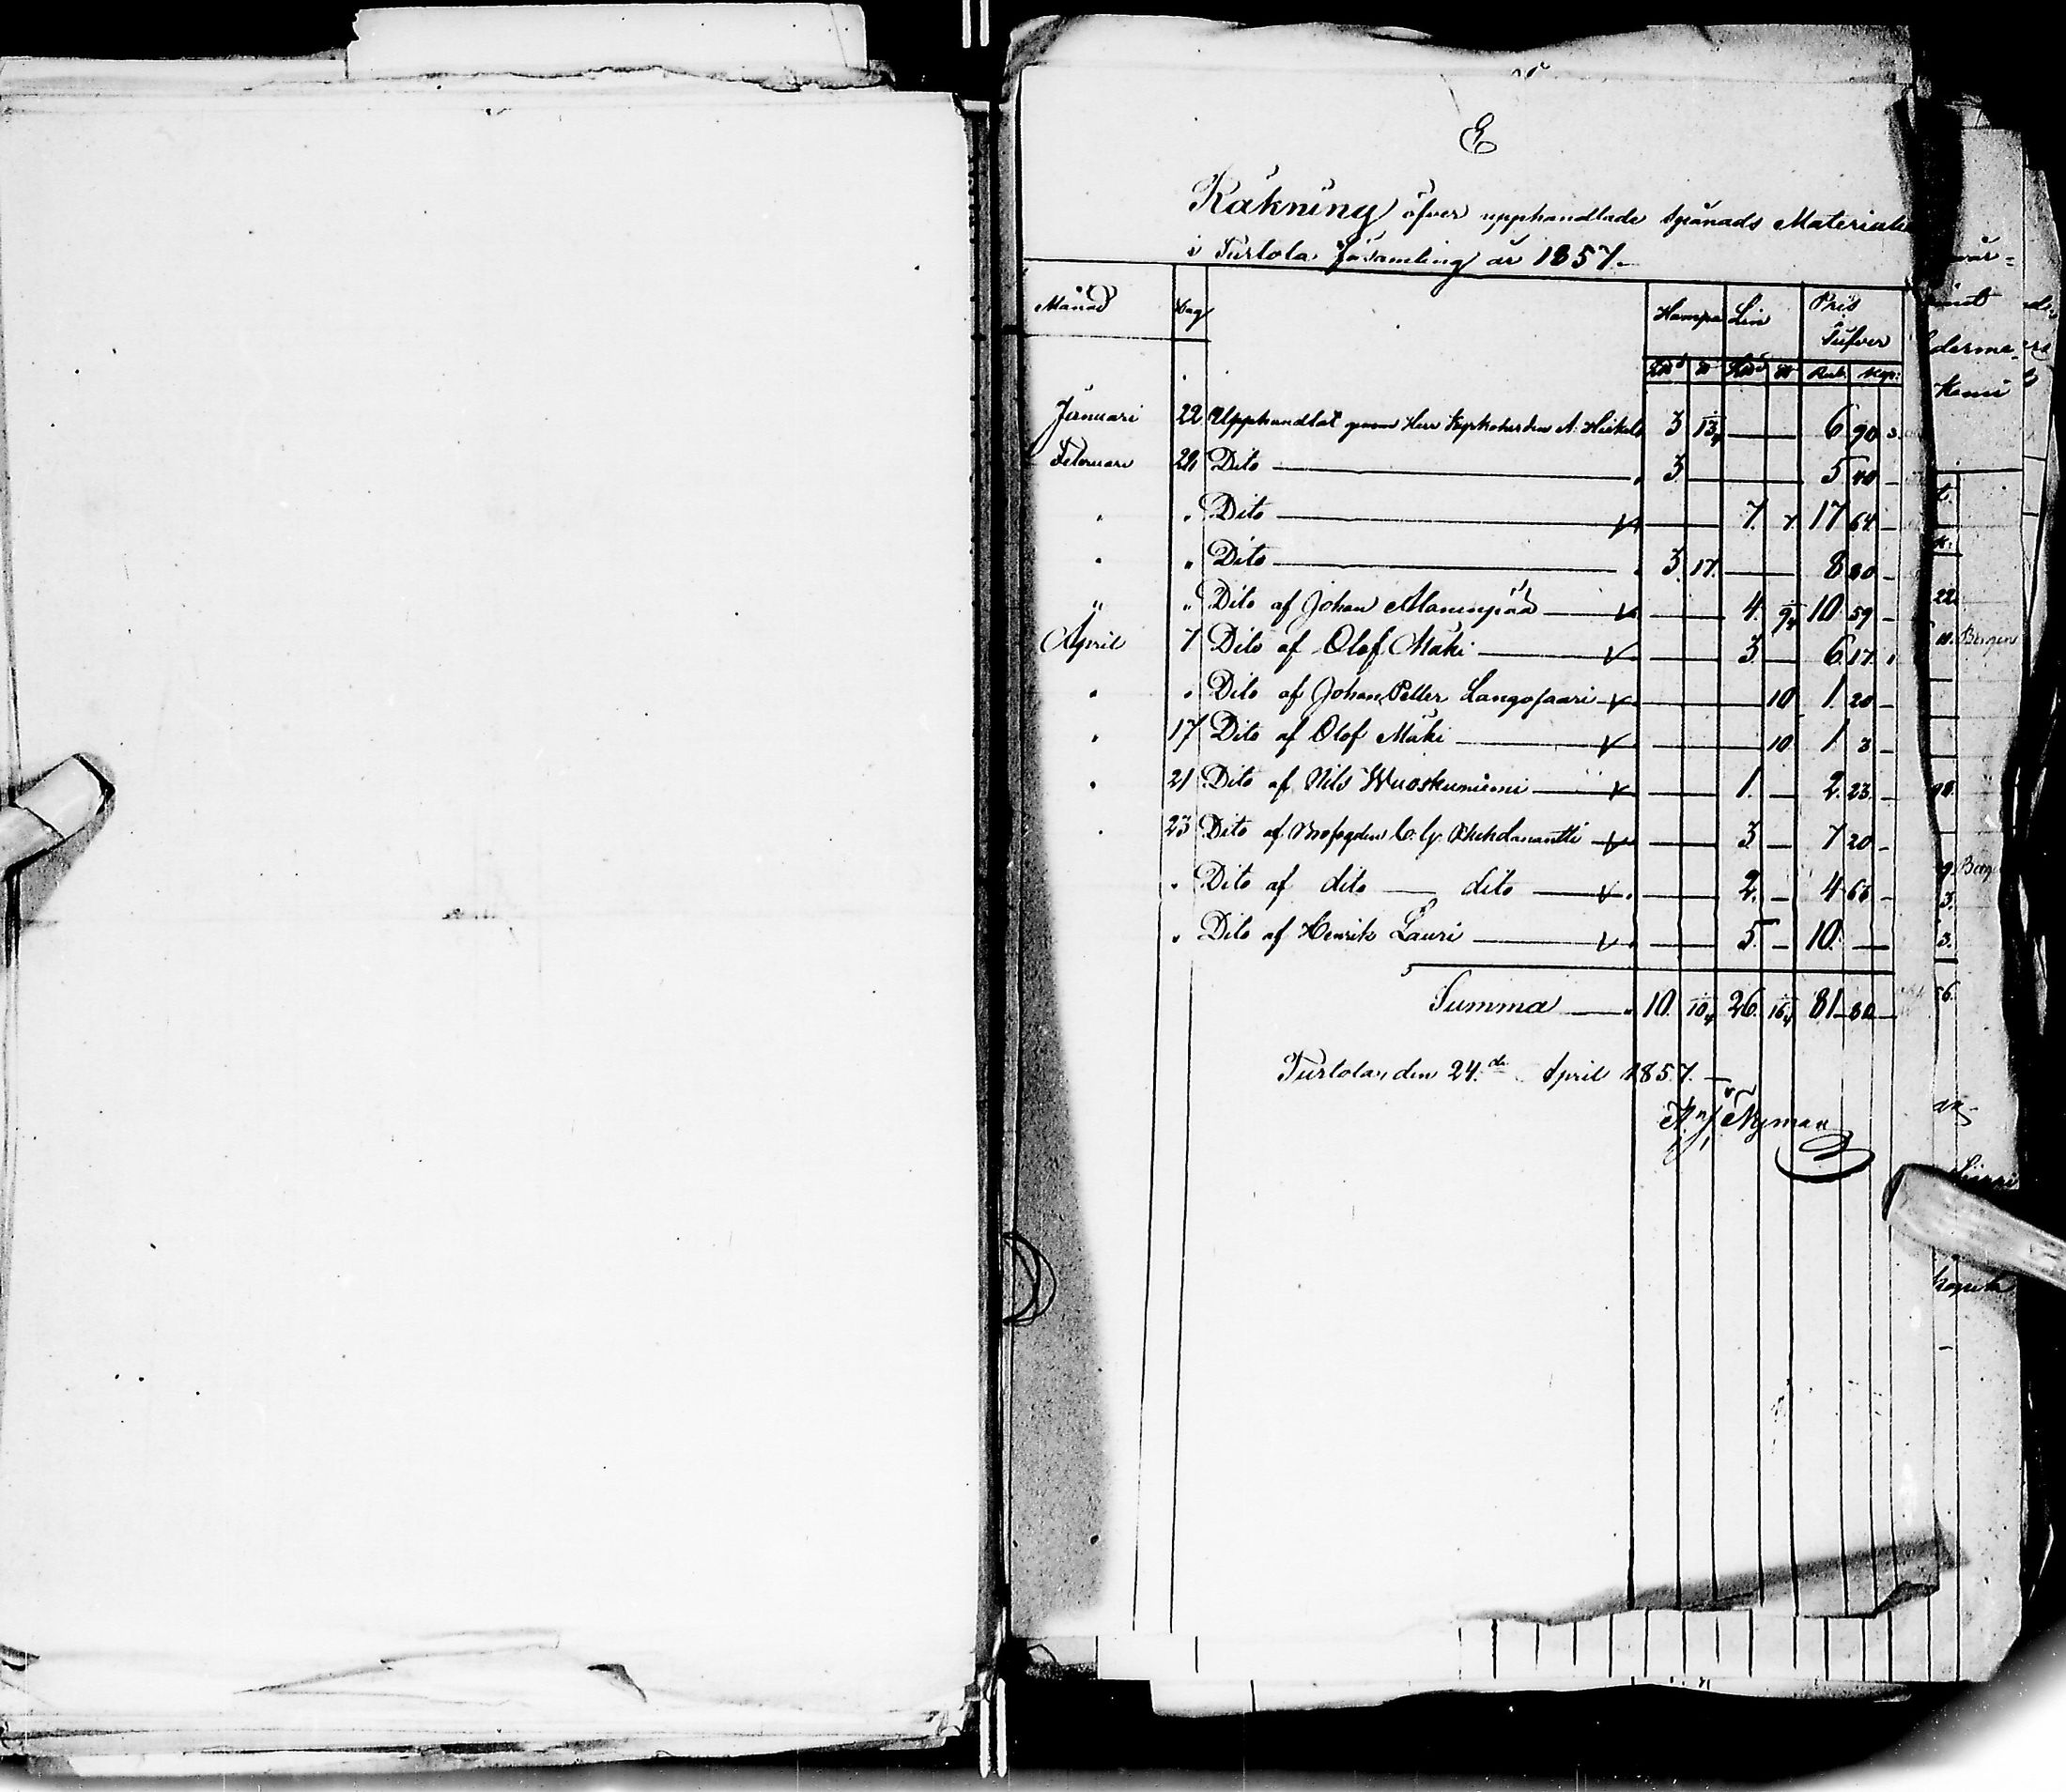 E
Räkning öfver upphandlade Spånads Material
i Turtola församling år 1857.
Månad Dag Hampa Lin Pris Silfver
L℔ ℔ L℔ ℔ Rub. Kop:
Januari 22 Upphandlat genom Herr Kyrkoherden A. Heikel 3 13 6 90
Februari 28 Dito 3 5 40 -
" " Dito 7. 7. 17 64 -
" " Dito 3. 17. 8 80 -
" " Dito af Johan Alaruupää 4. 9 10 59 -
April 7 Dito af Olof Mäki 3 - 6 17
" " Dito af Johan Petter Langojaari 10 1 20 -
" 17 Dito af Olof Mäki 10 1 3 -
" 21 Dito af Nils Wuoskuniemi 1. - 2. 23. -
" 23 Dito af C. G. 3 - 7 20 -
" Dito af dito dito 2. - 4 66 -
" Dito af Henrik Lauri 5. - 10. -
Summa 10. 10 26. 16 81 80 -
Turtola, den 24.de April 1857.
Nyman